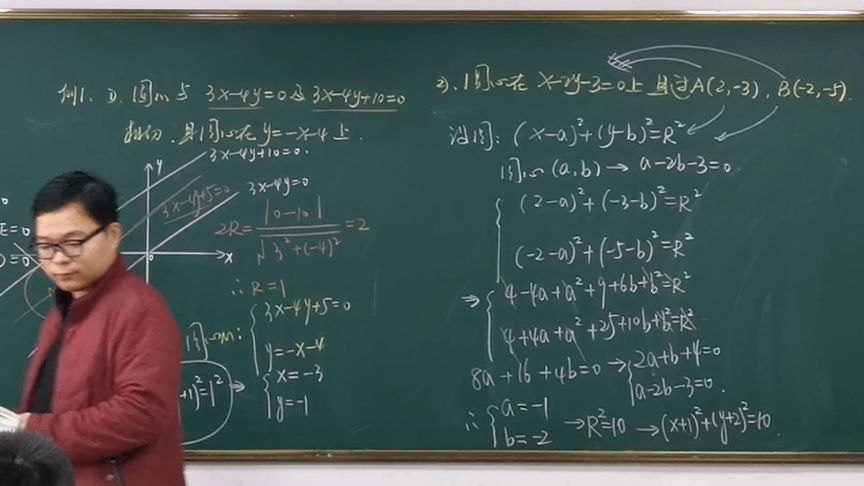 例1. ①. 圆m与 3x-4y=0及3x-4y+10=0
相切.且圆心在y=-x-4上.
3x-4y+10=0.
y
3x-4y=0
3x-4y+5=0
x
0
E=0
=0
2R=|0-10|/√(3²+(-4)²)=2
∴ R=1
圆心m: {3x-4y+5=0
y=-x-4
⇒ {x=-3
y=-1
+1)²=1²
2). 圆心在 x-2y-3=0上 且过A(2,-3), B(-2,-5).
设圆: (x-a)²+(y-b)²=R²
圆心(a,b)→ a-2b-3=0.
{(2-a)²+(-3-b)²=R²
(-2-a)²+(-5-b)²=R²
⇒ {4-4a+a²+9+6b+b²=R²
4+4a+a²+25+10b+b²=R²
8a+16+4b=0 → {2a+b+4=0
a-2b-3=0.
∴ {a=-1
b=-2
→R²=10 →(x+1)²+(y+2)²=10.